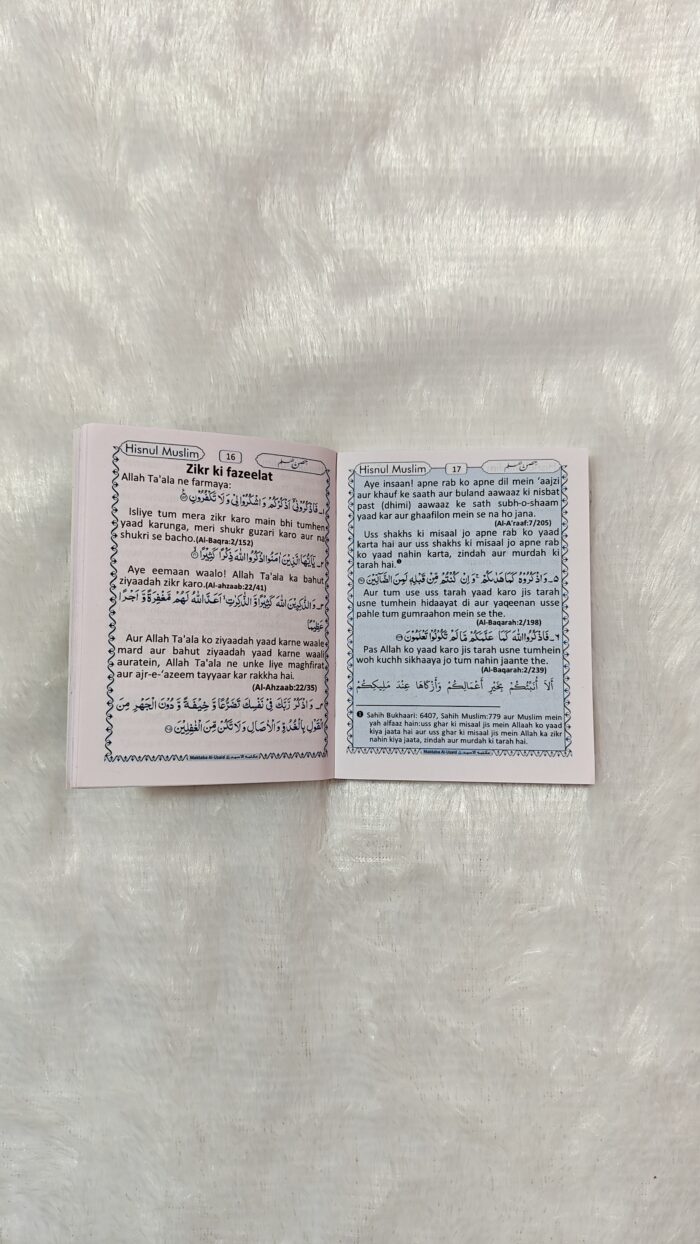 Hisnul Muslim 16 حصن المسلم
Zikr ki fazeelat
Allah Ta'ala ne farmaya:
۱۔ فَاذْكُرُوْنِیْۤ اَذْكُرْكُمْ وَ اشْكُرُوْا لِیْ وَ لَا تَكْفُرُوْنِ
Isliye tum mera zikr karo main bhi tumhen
yaad karunga, meri shukr guzari karo aur na
shukri se bacho.(Al-Baqra:2/152)
۲۔ یٰۤاَیُّهَا الَّذِیْنَ اٰمَنُوا اذْكُرُوا اللّٰهَ ذِكْرًا كَثِیْرًا
Aye eemaan waalo! Allah Ta'ala ka bahut
ziyaadah zikr karo.(Al-ahzaab:22/41)
۳۔ وَ الذّٰكِرِیْنَ اللّٰهَ كَثِیْرًا وَّ الذّٰكِرٰتِ ۙ اَعَدَّ اللّٰهُ لَهُمْ مَّغْفِرَةً وَّ اَجْرًا
عَظِیْمًا
Aur Allah Ta'ala ko ziyaadah yaad karne waale
mard aur bahut ziyaadah yaad karne waali
auratein, Allah Ta'ala ne unke liye maghfirat
aur ajr-e-'azeem tayyaar kar rakkha hai.
(Al-Ahzaab:22/35)
۴۔ وَ اذْكُرْ رَّبَّكَ فِیْ نَفْسِكَ تَضَرُّعًا وَّ خِیْفَةً وَّ دُوْنَ الْجَهْرِ مِنَ
الْقَوْلِ بِالْغُدُوِّ وَ الْاٰصَالِ وَ لَا تَكُنْ مِّنَ الْغٰفِلِیْنَ
Maktaba Al-Usaid
Hisnul Muslim 17 حصن المسلم
Aye insaan! apne rab ko apne dil mein 'aajzi
aur khauf ke saath aur buland aawaaz ki nisbat
past (dhimi) aawaaz ke sath subh-o-shaam
yaad kar aur ghaafilon mein se na ho jana.
(Al-A'raaf:7/205)
Uss shakhs ki misaal jo apne rab ko yaad
karta hai aur uss shakhs ki misaal jo apne rab
ko yaad nahin karta, zindah aur murdah ki
tarah hai.❶
۵۔ وَ اذْكُرُوْهُ كَمَا هَدٰىكُمْ ۚ وَ اِنْ كُنْتُمْ مِّنْ قَبْلِهٖ لَمِنَ الضَّآلِّیْنَ
Aur tum use uss tarah yaad karo jis tarah
usne tumhein hidaayat di aur yaqeenan usse
pahle tum gumraahon mein se the.
(Al-Baqarah:2/198)
۶۔ فَاذْكُرُوا اللّٰهَ كَمَا عَلَّمَكُمْ مَّا لَمْ تَكُوْنُوْا تَعْلَمُوْنَ
Pas Allah ko yaad karo jis tarah usne tumhein
woh kuchh sikhaaya jo tum nahin jaante the.
(Al-Baqarah:2/239)
أَلَا أُنَبِّئُكُمْ بِخَيْرِ أَعْمَالِكُمْ وَأَزْكَاهَا عِنْدَ مَلِيكِكُمْ
❶ Sahih Bukhaari: 6407, Sahih Muslim:779 aur Muslim mein
yah alfaaz hain:uss ghar ki misaal jis mein Allaah ko yaad
kiya jaata hai aur uss ghar ki misaal jis mein Allah ka zikr
nahin kiya jaata, zindah aur murdah ki tarah hai.
Maktaba Al-Usaid